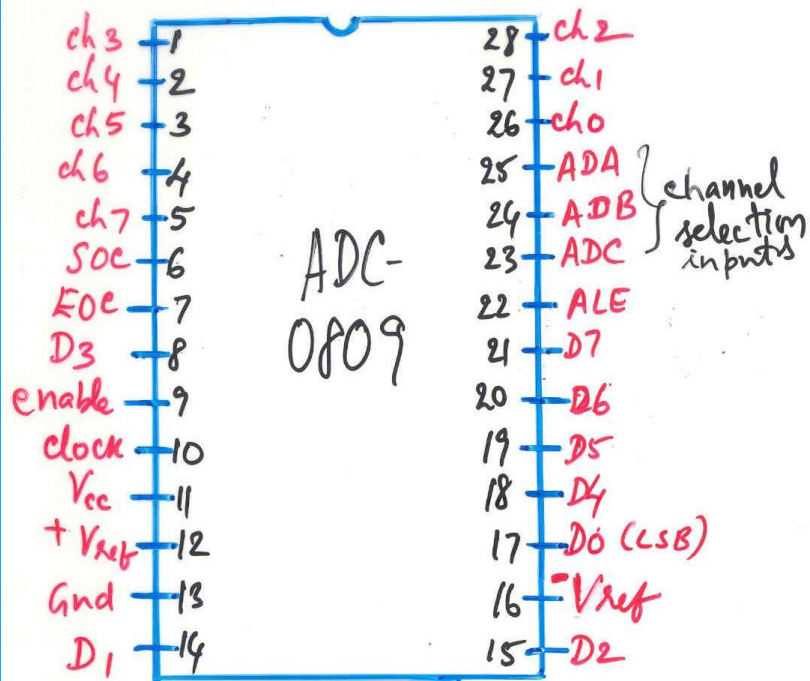 ch3 1
ch4 2
ch5 3
ch6 4
ch7 5
SOC 6
EOC 7
D3 8
enable 9
clock 10
Vcc 11
+ Vref 12
Gnd 13
D1 14
ADC-
0809
28 ch2
27 ch1
26 ch0
25 ADA
24 ADB
23 ADC
channel
selection
inputs
22 ALE
21 D7
20 D6
19 D5
18 D4
17 D0 (LSB)
16 -Vref
15 D2